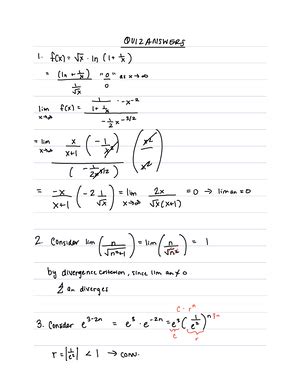 QUIZ ANSWERS
1. f(x) = √x · ln (1 + 1/x)
= (ln + 1/x) / (1/√x) "0/0" as x → ∞
lim x→∞ f(x) = (1/(1+1/x) · -x^-2) / (-1/2 x^-3/2)
= lim x→∞ x/(x+1) (-1/x²) / (-1/2x^3/2) (x²/x²)
= -x/(x+1) (-2 1/√x) = lim x→∞ 2x/(√x(x+1)) = 0 → lim an = 0
2. Consider lim (n/√(n²+1)) = lim (n/√n²) = 1
by divergence criterion, since lim an ≠ 0
∑ an diverges
c · r^n
3. Consider e^(3-2n) = e³ · e^-2n = e³ (1/e²)^n
c r
r = |1/e²| < 1 → conv.